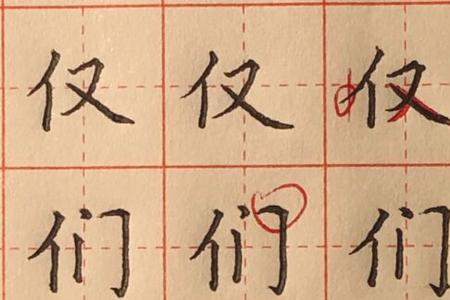 仅仅仅
们们们